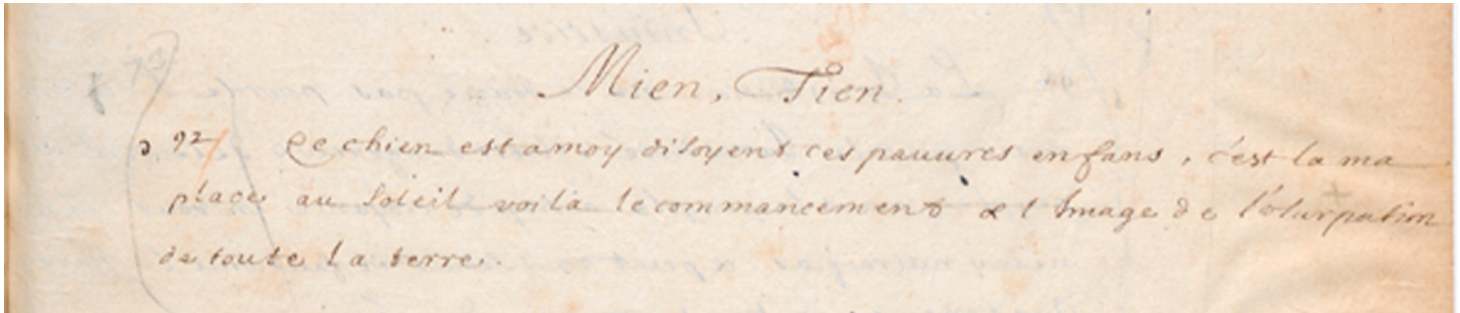 Mien, Tien.
92/ Ce chien est a moy disoyent ces pauures enfans, c'est la ma
place au soleil voila le commancement & l'Image de l'vsurpation
de toute La terre.